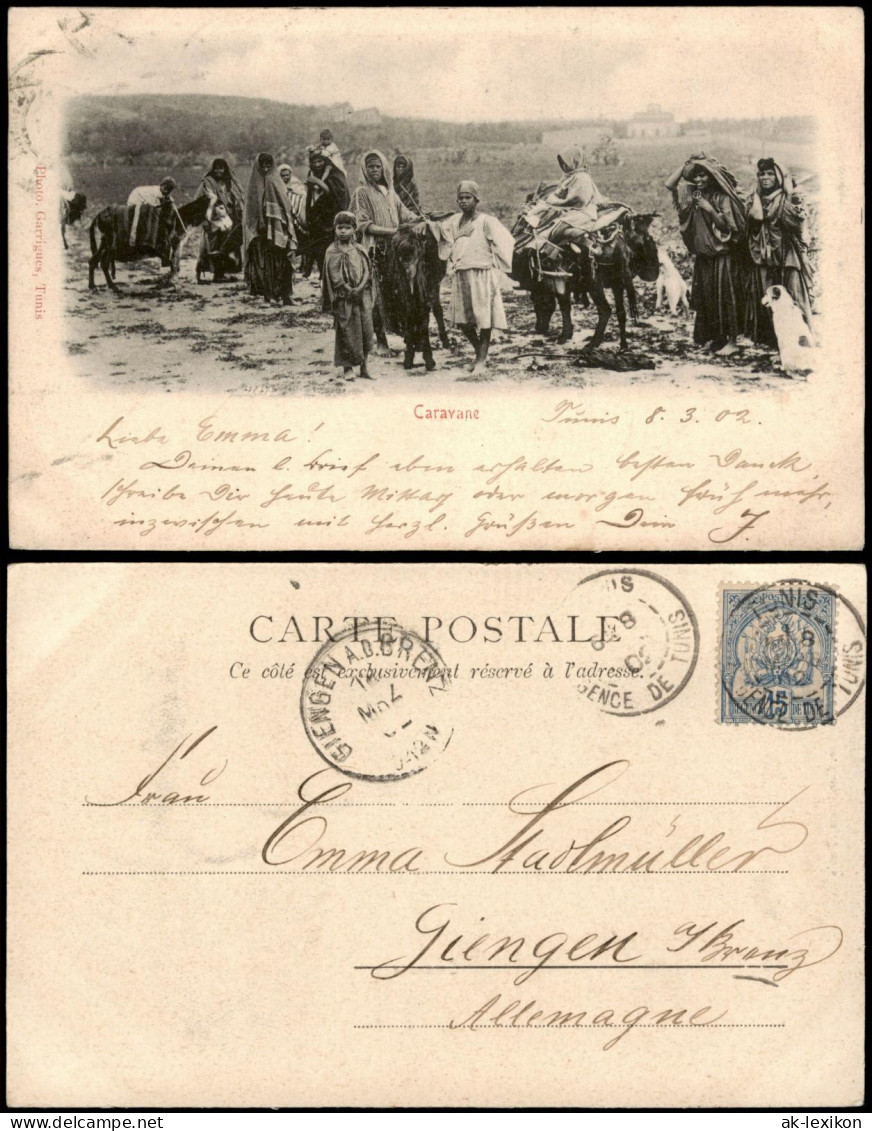 Photo. Garrigues, Tunis
Caravane
Tunis 8.3.02.
Liebe Emma!
Deinen l. Brief eben erhalten besten Danck,
schreibe Dir heute Mittag oder morgen früh mehr,
inzwischen mit herzl. Grüßen Dein J.
CARTE POSTALE
Ce côté est exclusivement réservé à l'adresse.
GIENGEN A.D. BRENZ
MRZ
TUNIS
TUNIS
8
AGENCE DE
TUNIS
TUNIS
8
AGENCE DE
POSTES
15
REGENCE DE TUNIS
Frau
Emma Stadlmüller
Giengen a/Brenz
Allemagne
ak-lexikon